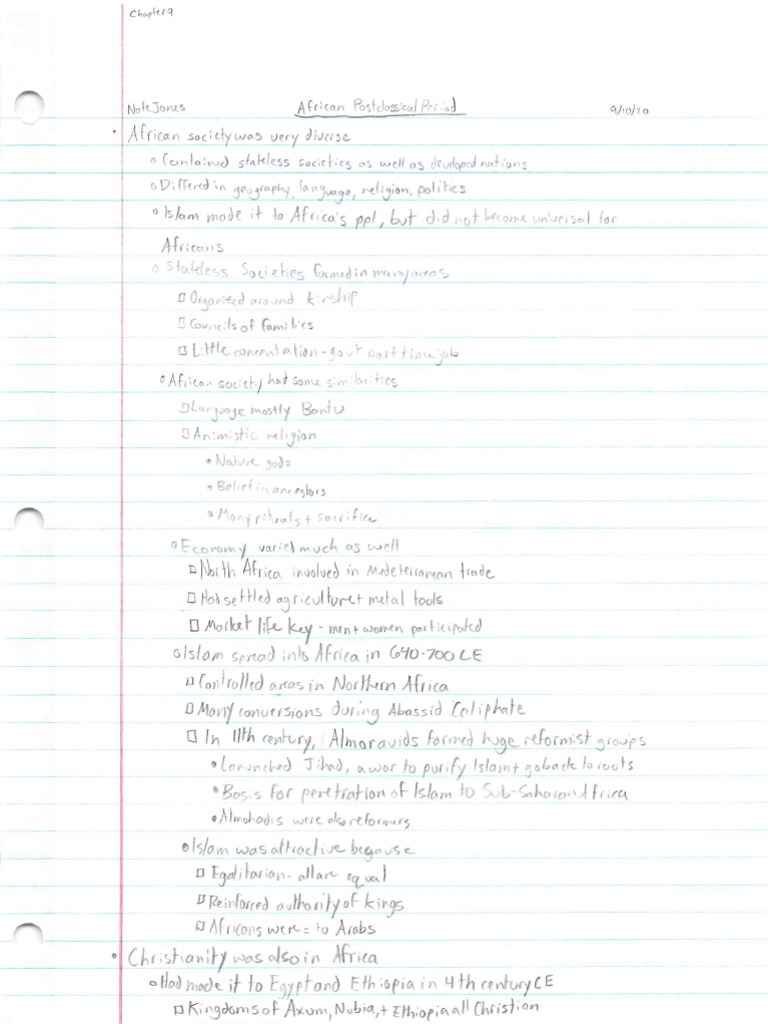 Chapter 9
Nate Jones African Postclassical Period 9/10/20
• African society was very diverse
o Contained stateless societies as well as developed nations
o Differed in geography, language, religion, politics
o Islam made it to Africa's ppl, but did not become universal for
Africans
o Stateless Societies formed in many areas
□ Organized around kinship
□ Councils of families
□ Little concentration - gov't part time job
o African society had some similarities
□ Language mostly Bantu
□ Animistic religion
• Nature gods
• Belief in ancestors
• Many rituals + sacrifice
o Economy varied much as well
□ North Africa involved in Medeterranean trade
□ Had settled agriculture + metal tools
□ Market life key - men + women participated
o Islam spread into Africa in 640-700 CE
□ Controlled areas in Northern Africa
□ Many conversions during Abassid Caliphate
□ In 11th century, Almoravids formed huge reformist groups
• Lanunched Jihad, a war to purify Islam + go back to roots
• Basis for penetration of Islam to Sub-Saharan Africa
• Almohadis were also reformers
o Islam was attractive because
□ Egalitarian - all are equal
□ Reinforced authority of kings
□ Africans were = to Arabs
• Christianity was also in Africa
o Had made it to Egypt and Ethiopia in 4th century CE
□ Kingdoms of Axum, Nubia, + Ethiopia all Christian